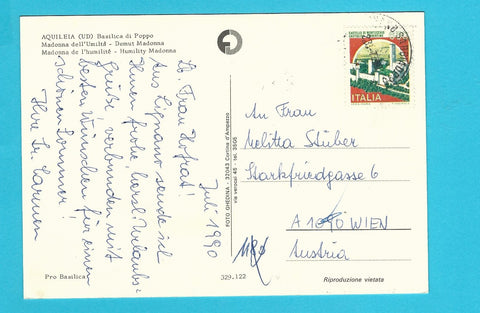 AQUILEIA (UD) Basilica di Poppo
Madonna dell'Umiltà - Demut Madonna
Madonna de l'humilité - Humility Madonna
Juli 1990
Lb Frau Hofrat!
Aus Lignano sende ich
Ihnen frohe, herzl. Urlaubs-
grüße, verbunden mit
besten Wünschen für einen
schönen Sommer!
Ihre Sr. Carmen
Pro Basilica
329.122
FOTO GHEDINA - 32043 Cortina d'Ampezzo
via verocai 45 - tel. 2005
ITALIA
An Frau
Melitta Stüber
Starkfriedgasse 6
WIEN
Austria
1180
Riproduzione vietata